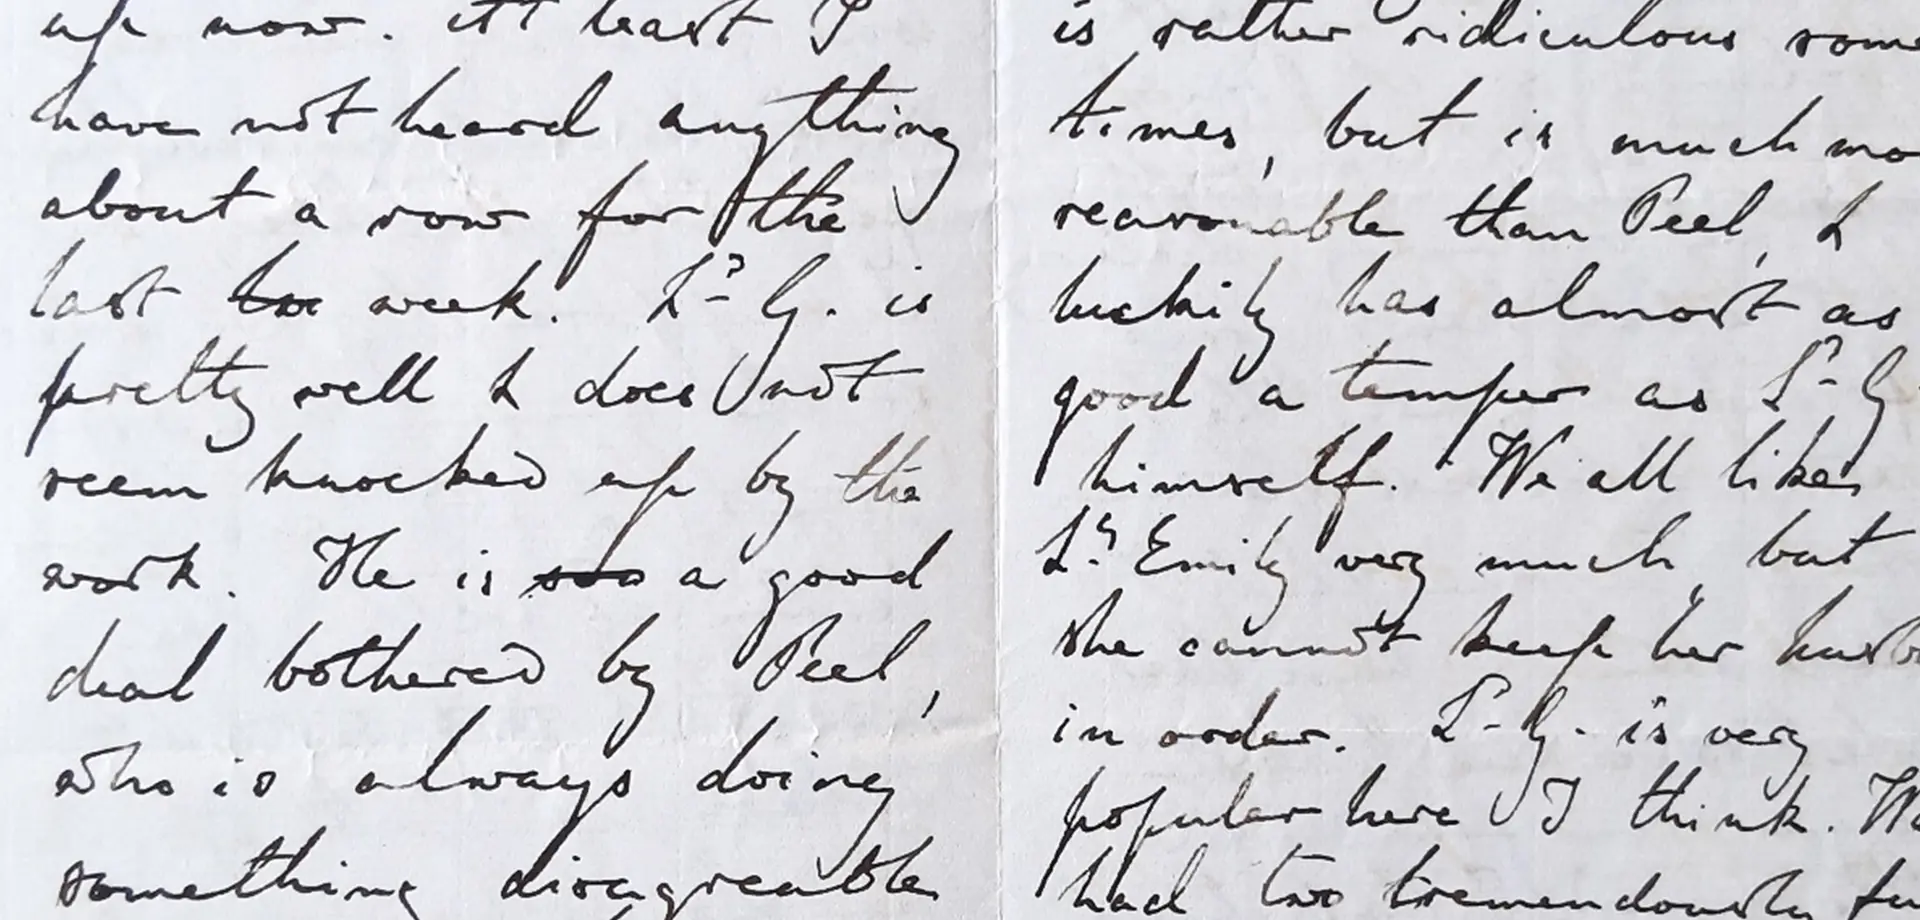 up now. At least I
have not heard anything
about a row for the
last week. Ld G. is
pretty well & does not
seem knocked up by the
work. He is a good
deal bothered by Peel,
who is always doing
something disagreeable
is rather ridiculous some
times, but is much mo
reasonable than Peel, &
luckily has almost as
good a temper as Ld G
himself. We all like
Ly Emily very much, but
she cannot keep her husb
in order. Ld G. is very
popular here I think. We
had two tremendously fu